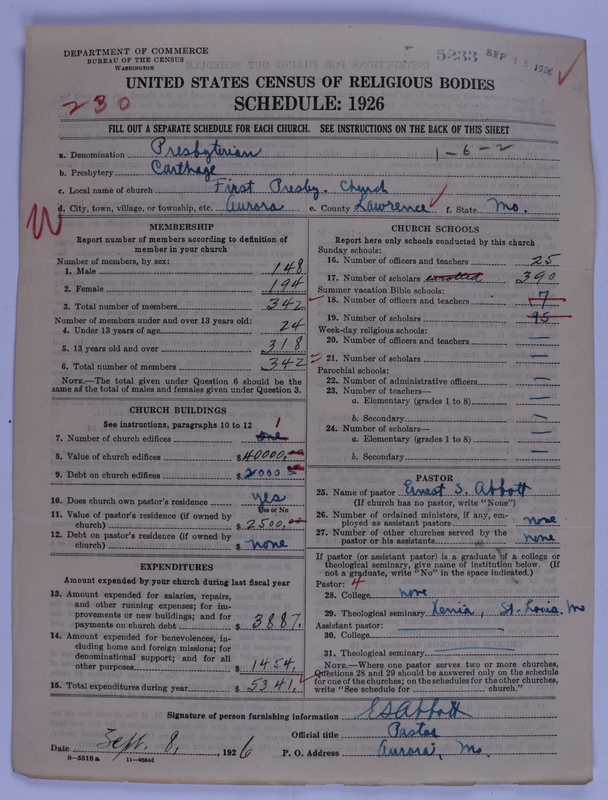 DEPARTMENT OF COMMERCE
BUREAU OF THE CENSUS
WASHINGTON
5233 SEP 13 1926
UNITED STATES CENSUS OF RELIGIOUS BODIES
SCHEDULE: 1926
230
FILL OUT A SEPARATE SCHEDULE FOR EACH CHURCH. SEE INSTRUCTIONS ON THE BACK OF THIS SHEET
a. Denomination Presbyterian 1-6-2
b. Presbytery Carthage
c. Local name of church First Presby. Church
d. City, town, village, or township, etc. Aurora e. County Lawrence f. State Mo.
W
MEMBERSHIP
Report number of members according to definition of
member in your church
Number of members, by sex:
1. Male 148
2. Female 194
3. Total number of members 342
Number of members under and over 13 years old:
4. Under 13 years of age 24
5. 13 years old and over 318
6. Total number of members 342
NOTE.—The total given under Question 6 should be the
same as the total of males and females given under Question 3.
CHURCH BUILDINGS
See instructions, paragraphs 10 to 12
7. Number of church edifices one 1
8. Value of church edifices $40000,00
9. Debt on church edifices $2000
10. Does church own pastor's residence yes
Yes or No
11. Value of pastor's residence (if owned by
church) $2500,00
12. Debt on pastor's residence (if owned by
church) $ none
EXPENDITURES
Amount expended by your church during last fiscal year
13. Amount expended for salaries, repairs,
and other running expenses; for im-
provements or new buildings; and for
payments on church debt $3887.
14. Amount expended for benevolences, in-
cluding home and foreign missions; for
denominational support; and for all
other purposes $1454.
15. Total expenditures during year $5341.
CHURCH SCHOOLS
Report here only schools conducted by this church
Sunday schools:
16. Number of officers and teachers 25
17. Number of scholars enrolled 390
Summer vacation Bible schools:
18. Number of officers and teachers 7
19. Number of scholars 95
Week-day religious schools:
20. Number of officers and teachers —
21. Number of scholars —
Parochial schools:
22. Number of administrative officers —
23. Number of teachers—
a. Elementary (grades 1 to 8) —
b. Secondary —
24. Number of scholars—
a. Elementary (grades 1 to 8) —
b. Secondary —
PASTOR
25. Name of pastor Ernest S. Abbott
(If church has no pastor, write "None")
26. Number of ordained ministers, if any, em-
ployed as assistant pastors none
27. Number of other churches served by the
pastor or his assistants none
If pastor (or assistant pastor) is a graduate of a college or
theological seminary, give name of institution below. (If
not a graduate, write "No" in the space indicated.)
Pastor: 4
28. College none
29. Theological seminary Xenia, St. Louis, Mo
Assistant pastor:
30. College
31. Theological seminary
NOTE.—Where one pastor serves two or more churches,
Questions 28 and 29 should be answered only on the schedule
for one of the churches; on the schedules for the other churches,
write "See schedule for church."
Signature of person furnishing information E S Abbott
Official title Pastor
Date Sept. 8, 1926 P. O. Address Aurora, Mo.
8—5518a 11—00646